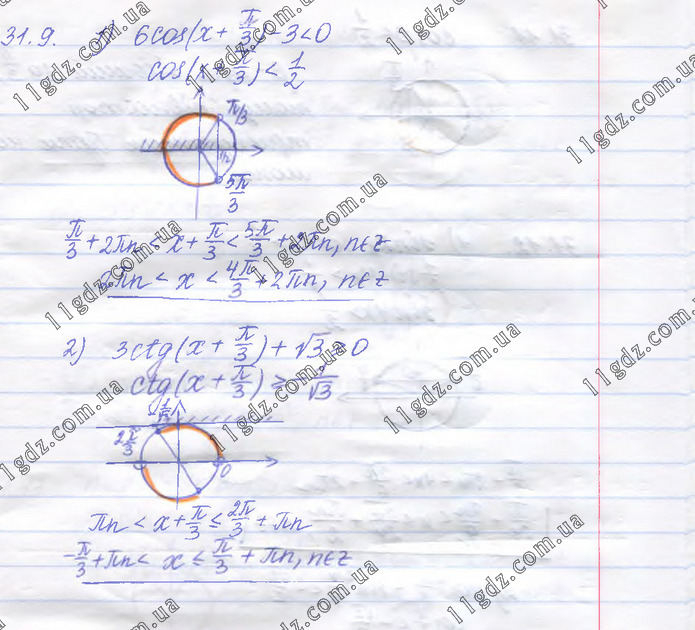 31.9. 1) 6cos(x + π/3) - 3 < 0
cos(x + π/3) < 1/2
π/3
1/2
5π/3
π/3 + 2πn < x + π/3 < 5π/3 + 2πn, n∈z
2πn < x < 4π/3 + 2πn, n∈z
2) 3ctg(x + π/3) + √3 ≥ 0
ctg(x + π/3) ≥ -1/√3
2π/3
0
πn < x + π/3 ≤ 2π/3 + πn
-π/3 + πn < x ≤ π/3 + πn, n∈z
11gdz.com.ua
11gdz.com.ua
11gdz.com.ua
11gdz.com.ua
11gdz.com.ua
11gdz.com.ua
11gdz.com.ua
11gdz.com.ua
11gdz.com.ua
11gdz.com.ua
11gdz.com.ua